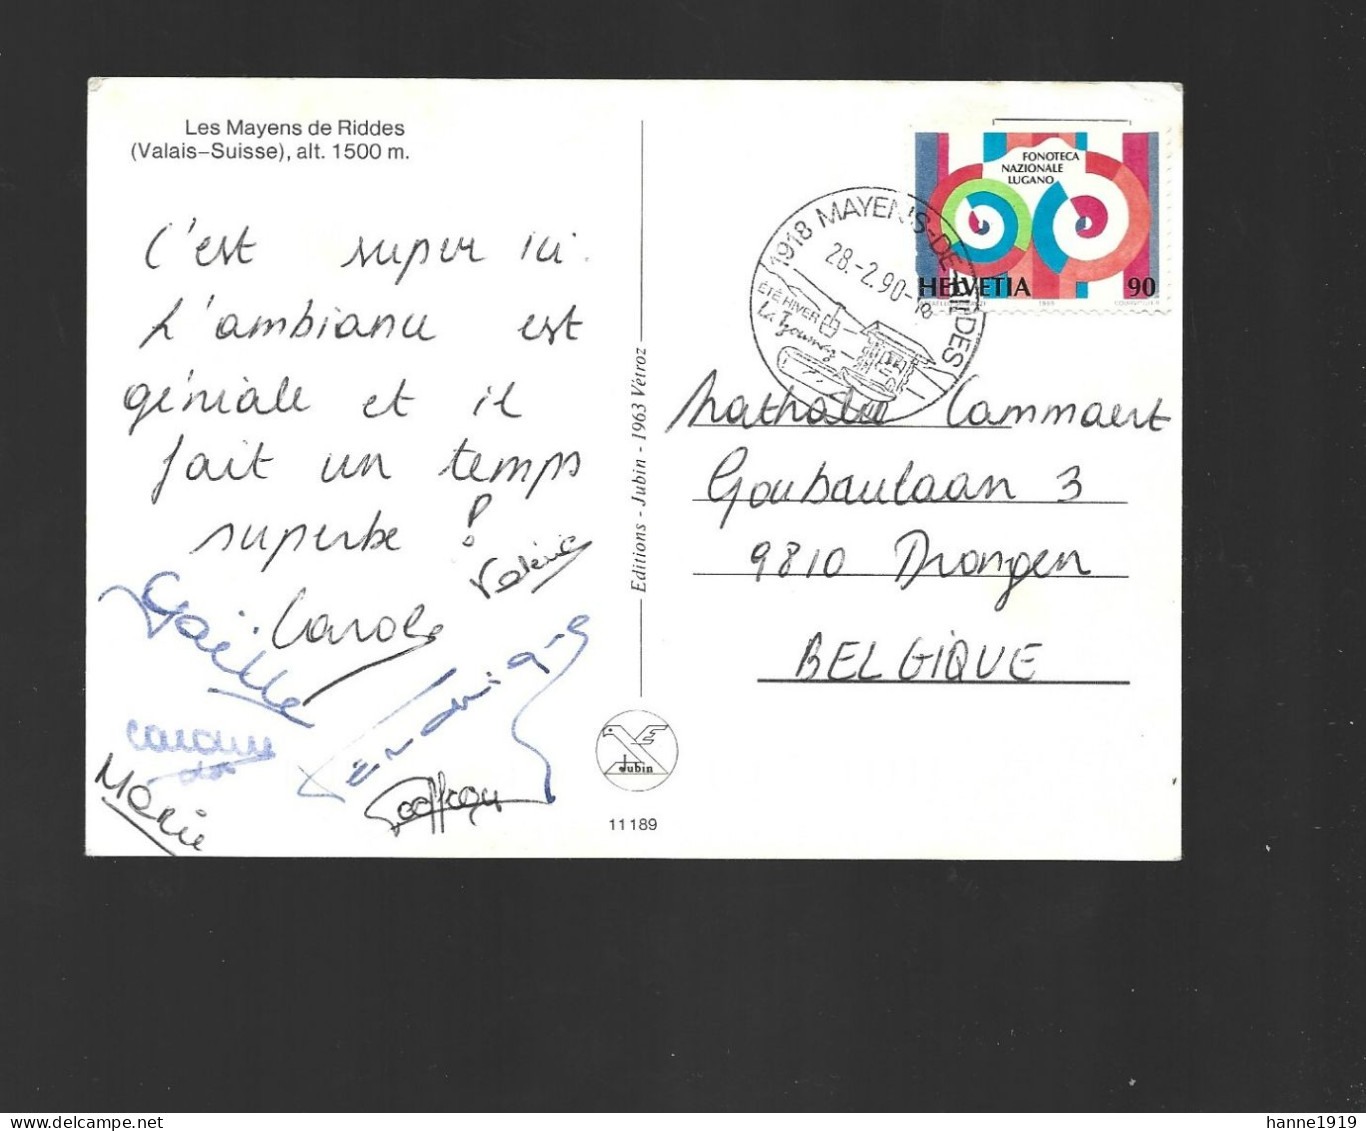 Les Mayens de Riddes
(Valais–Suisse), alt. 1500 m.
C'est super ici.
L'ambiance est
géniale et il
fait un temps
superbe !
Valérie
Gaëlle
Carole
Marie
Geoffroy
Editions - Jubin - 1963 Vétroz
Jubin
11189
FONOTECA
NAZIONALE
LUGANO
HELVETIA 90
1918 MAYENS-DE-RIDDES
28.-2.90-18
ÉTÉ HIVER
La Tzoumaz
Nathalie Cammaert
Goubaulaan 3
9810 Drongen
BELGIQUE
hanne1919